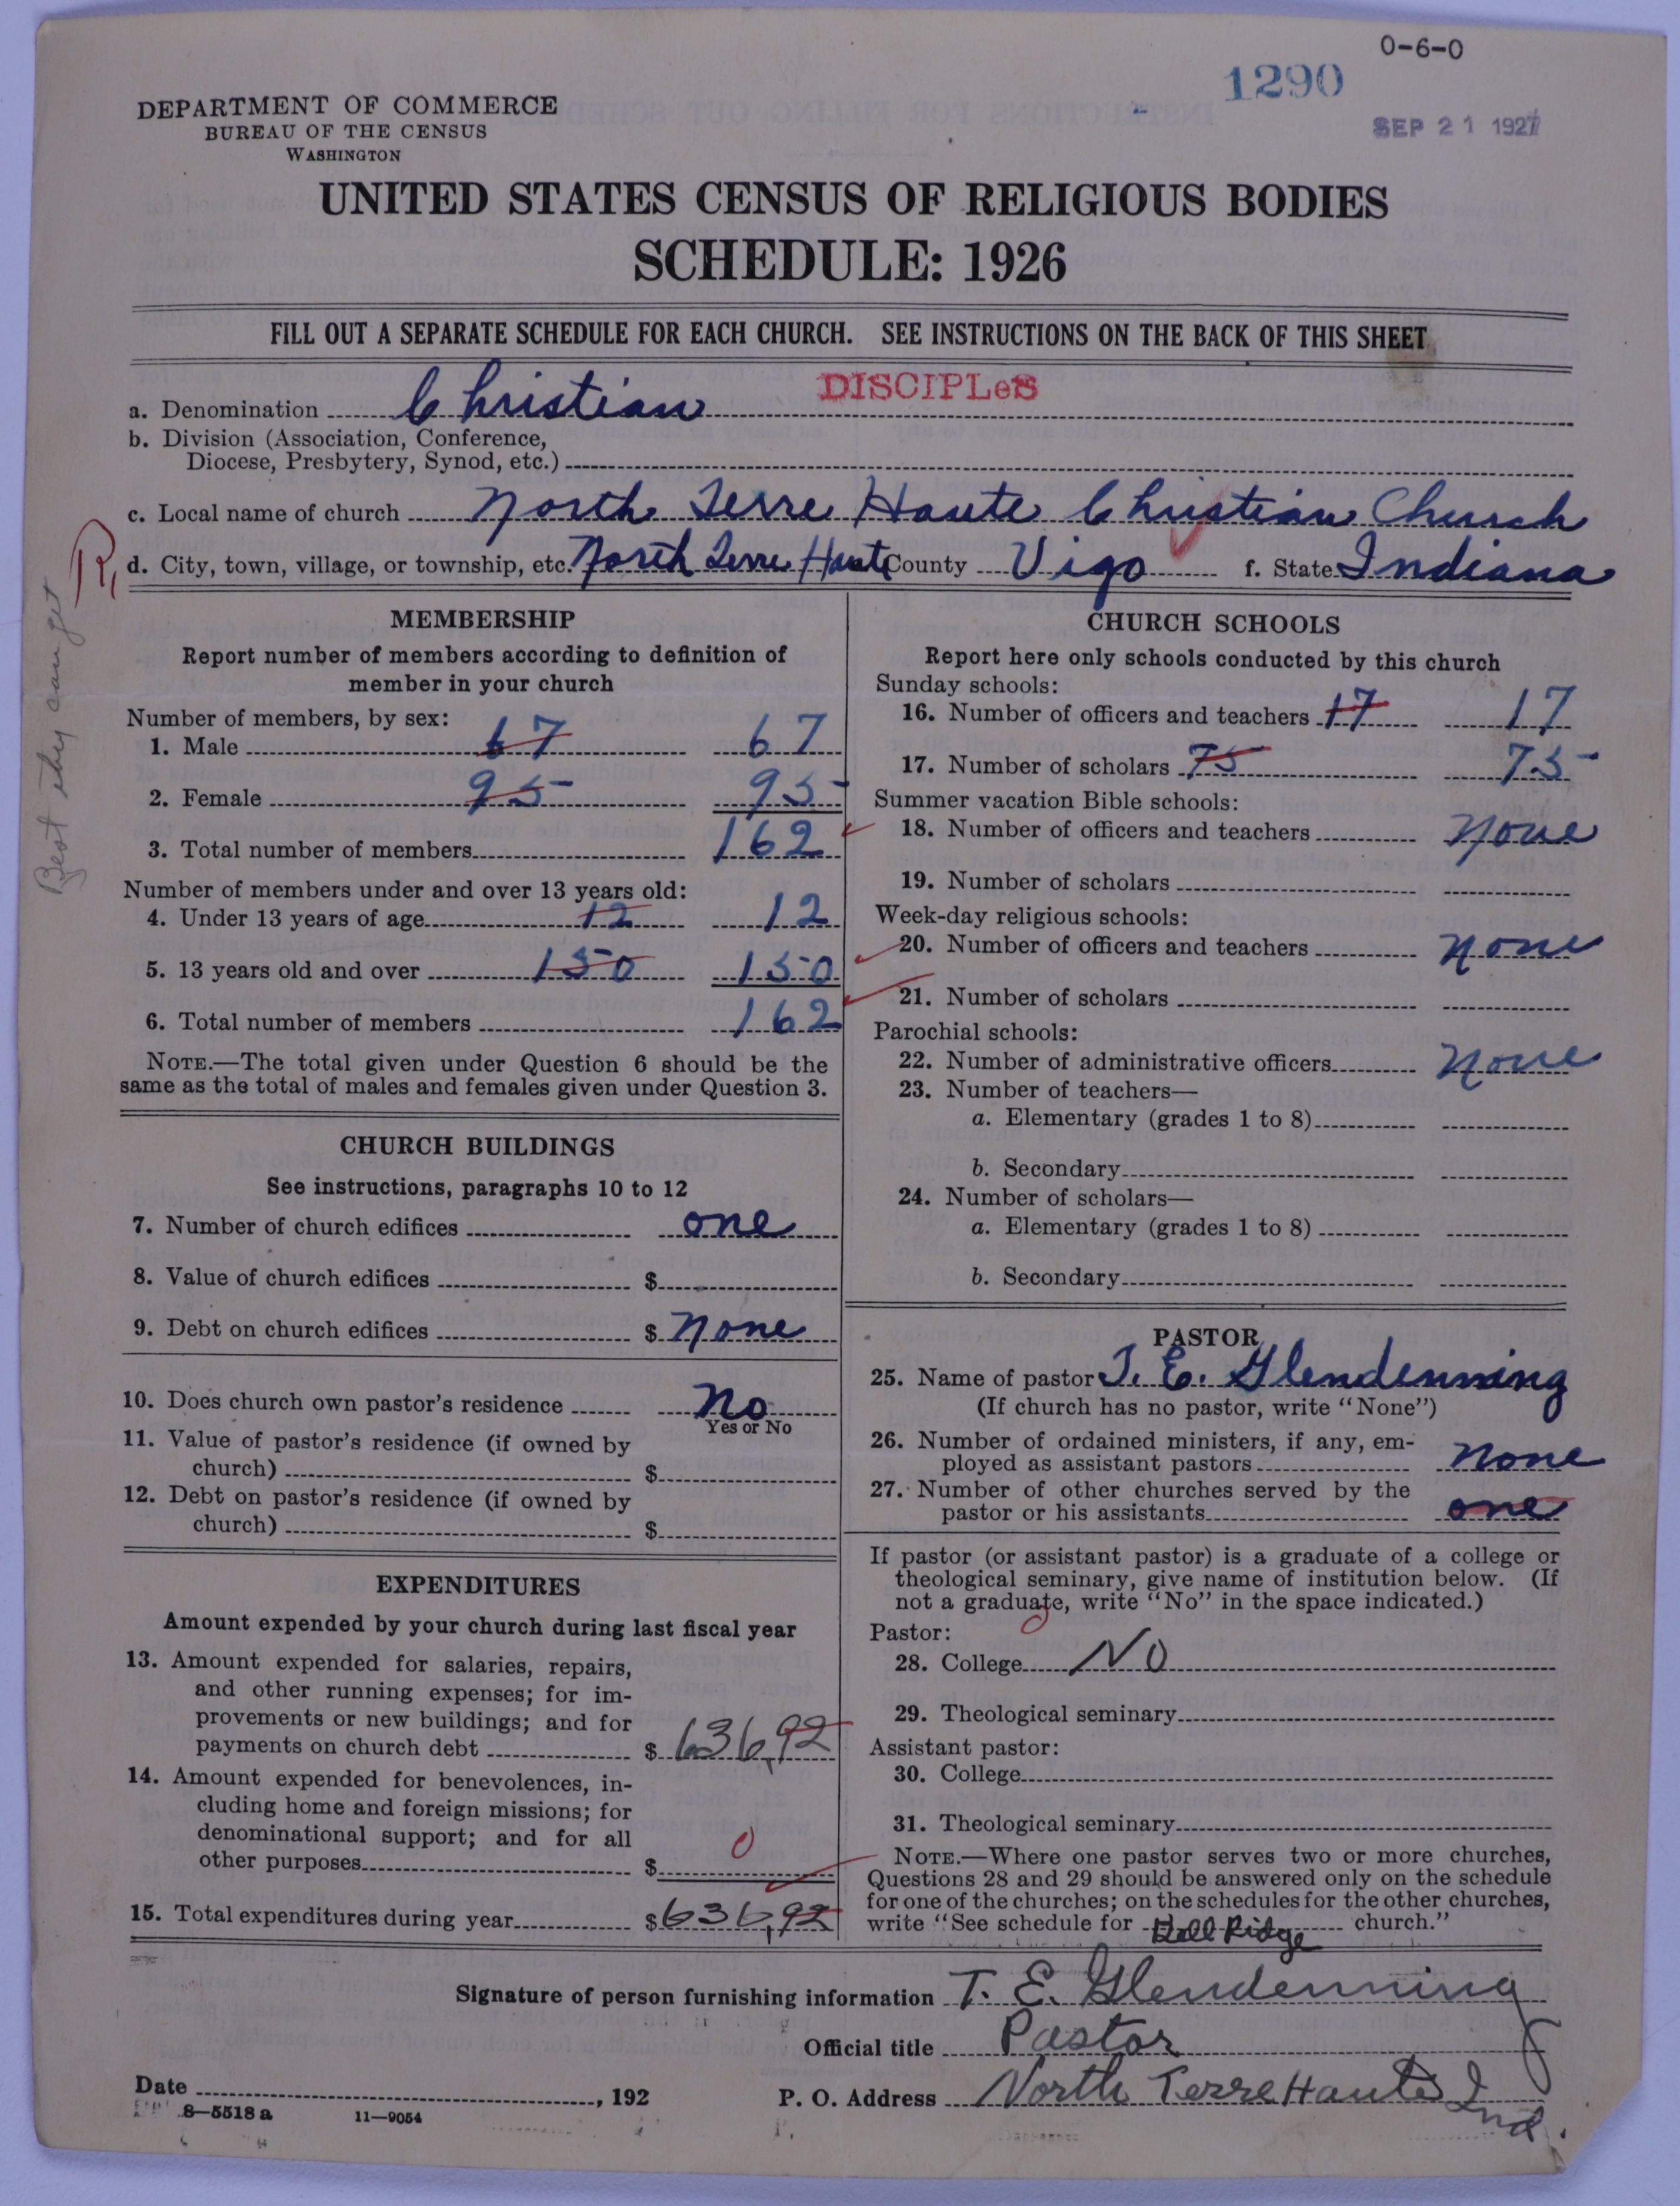 0-6-0
1290
SEP 21 1927
DEPARTMENT OF COMMERCE
BUREAU OF THE CENSUS
WASHINGTON
UNITED STATES CENSUS OF RELIGIOUS BODIES
SCHEDULE: 1926
FILL OUT A SEPARATE SCHEDULE FOR EACH CHURCH. SEE INSTRUCTIONS ON THE BACK OF THIS SHEET
a. Denomination Christian DISCIPLeS
b. Division (Association, Conference,
Diocese, Presbytery, Synod, etc.)
c. Local name of church North Terre Haute Christian Church
R,
d. City, town, village, or township, etc. North Terre Haute County Vigo f. State Indiana
Best they can get
MEMBERSHIP
Report number of members according to definition of
member in your church
Number of members, by sex:
1. Male 67 67
2. Female 95 95
3. Total number of members 162
Number of members under and over 13 years old:
4. Under 13 years of age 12 12
5. 13 years old and over 150 150
6. Total number of members 162
NOTE.—The total given under Question 6 should be the
same as the total of males and females given under Question 3.
CHURCH BUILDINGS
See instructions, paragraphs 10 to 12
7. Number of church edifices one
8. Value of church edifices $
9. Debt on church edifices $ None
10. Does church own pastor's residence No
Yes or No
11. Value of pastor's residence (if owned by
church) $
12. Debt on pastor's residence (if owned by
church) $
EXPENDITURES
Amount expended by your church during last fiscal year
13. Amount expended for salaries, repairs,
and other running expenses; for im-
provements or new buildings; and for
payments on church debt $ 636,92
14. Amount expended for benevolences, in-
cluding home and foreign missions; for
denominational support; and for all
other purposes $ 0
15. Total expenditures during year $ 636,92
CHURCH SCHOOLS
Report here only schools conducted by this church
Sunday schools:
16. Number of officers and teachers 17 17
17. Number of scholars 75 75
Summer vacation Bible schools:
18. Number of officers and teachers None
19. Number of scholars
Week-day religious schools:
20. Number of officers and teachers None
21. Number of scholars
Parochial schools:
22. Number of administrative officers None
23. Number of teachers—
a. Elementary (grades 1 to 8)
b. Secondary
24. Number of scholars—
a. Elementary (grades 1 to 8)
b. Secondary
PASTOR
25. Name of pastor T. E. Glendenning
(If church has no pastor, write "None")
26. Number of ordained ministers, if any, em-
ployed as assistant pastors None
27. Number of other churches served by the
pastor or his assistants one
If pastor (or assistant pastor) is a graduate of a college or
theological seminary, give name of institution below. (If
not a graduate, write "No" in the space indicated.)
Pastor:
28. College No
29. Theological seminary
Assistant pastor:
30. College
31. Theological seminary
NOTE.—Where one pastor serves two or more churches,
Questions 28 and 29 should be answered only on the schedule
for one of the churches; on the schedules for the other churches,
write "See schedule for Ridge church."
Signature of person furnishing information T. E. Glendenning
Official title Pastor
Date , 192 P. O. Address North Terre Haute Ind.
8—5518 a 11—9054